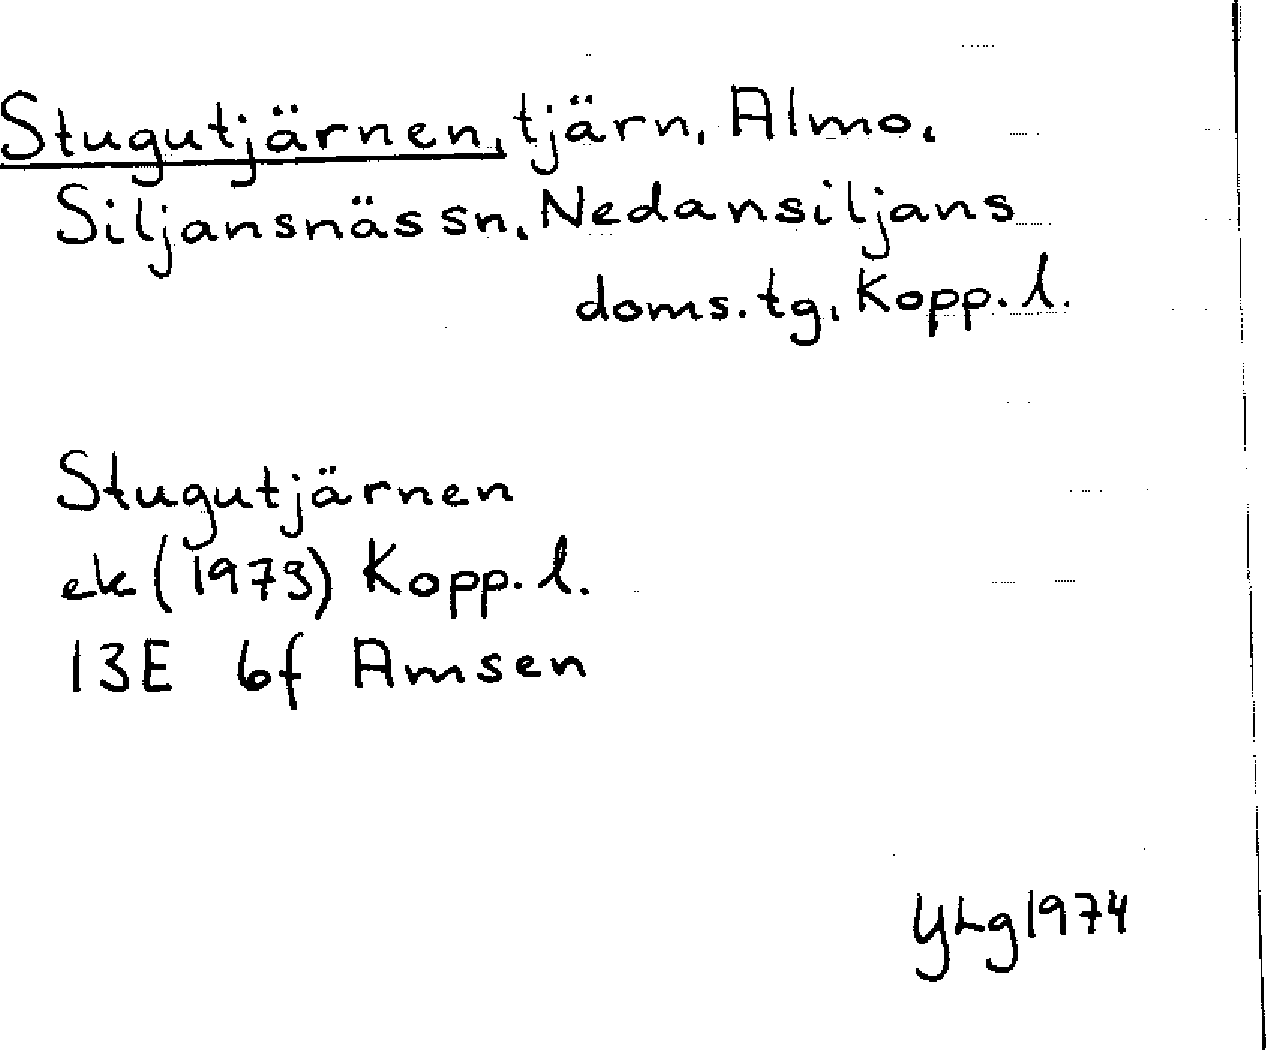 Stugutjärnen, tjärn, Almo,
Siljansnäs sn, Nedansiljans
doms.tg, Kopp. l.
Stugutjärnen
ek (1973) Kopp. l.
13E 6f Amsen
YLg 1974